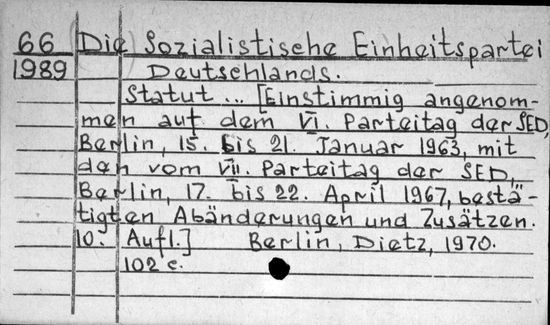 66 Die Sozialistische Einheitspartei
1989 Deutschlands.
Statut ... [Einstimmig angenom-
men auf dem VI. Parteitag der SED,
Berlin, 15. bis 21. Januar 1963, mit
den vom VII. Parteitag der SED,
Berlin, 17. bis 22. April 1967, bestä-
tigten Abänderungen und Zusätzen.
10. Aufl.] Berlin, Dietz, 1970.
102 c.